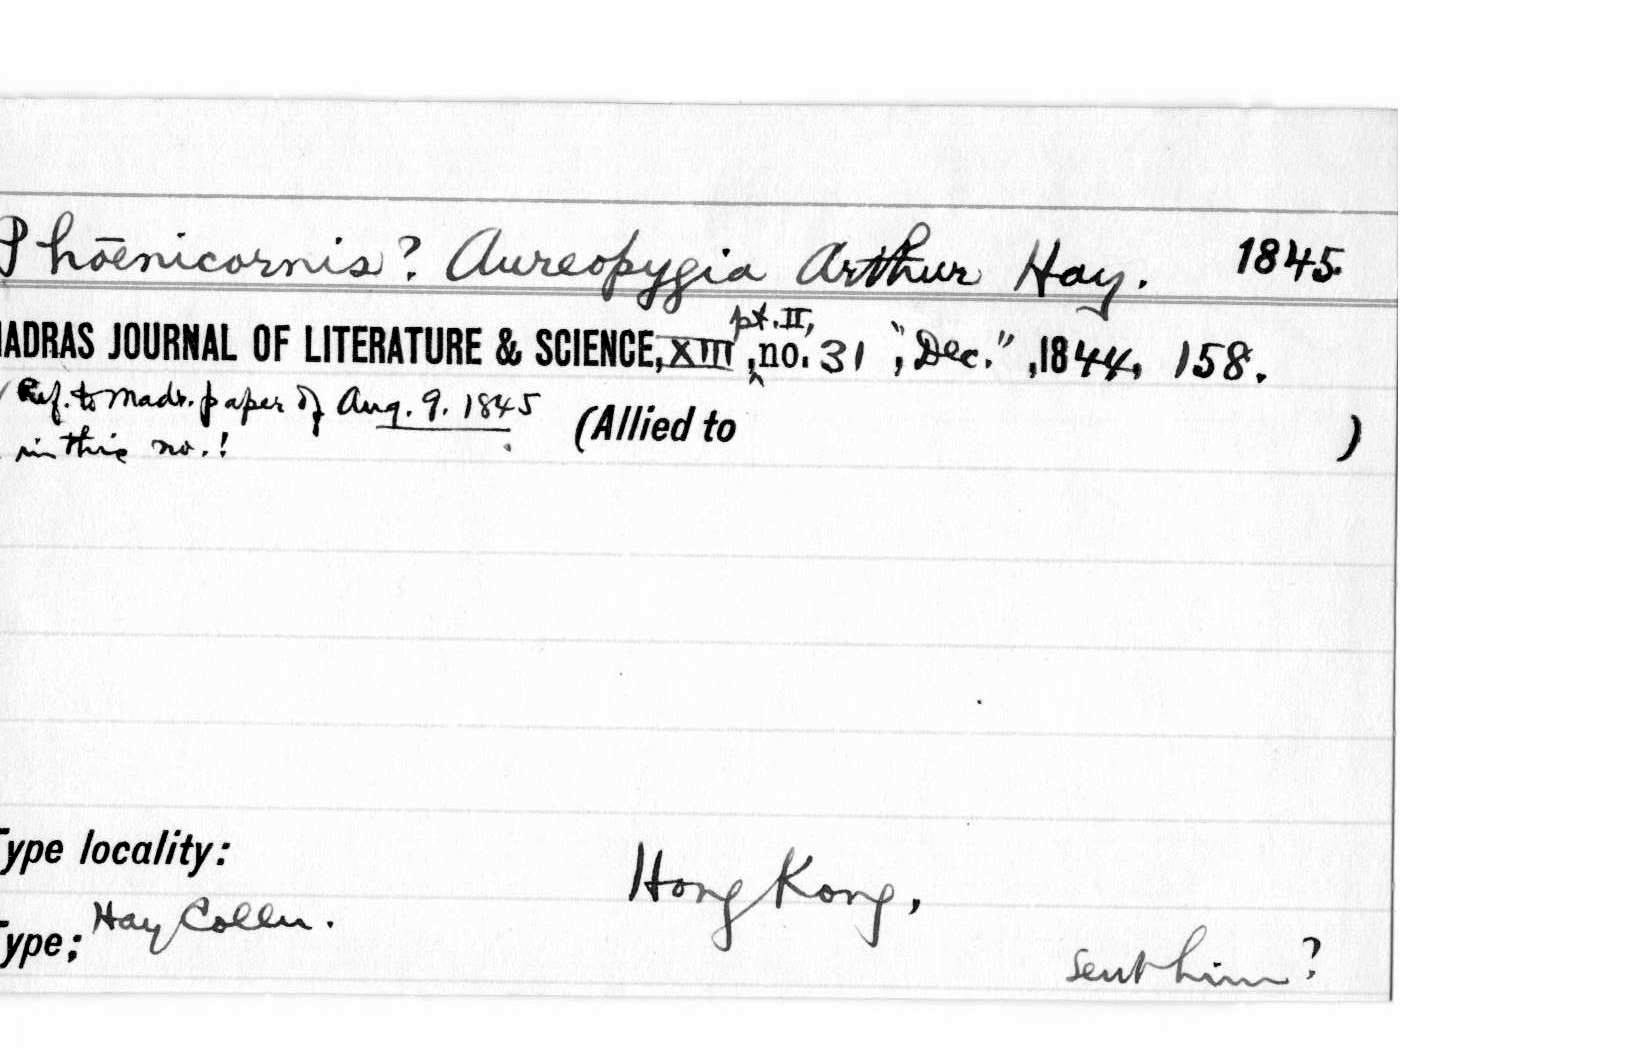 Phōenicornis? Aureopygia Arthur Hay. 1845.
MADRAS JOURNAL OF LITERATURE & SCIENCE, XIII, pt. II, no. 31, "Dec.", 1844, 158.
(Ref. to Madr. paper of Aug. 9. 1845 (Allied to )
in this no.!
Type locality: Hong Kong,
Type; Hay Colln.
sent him?